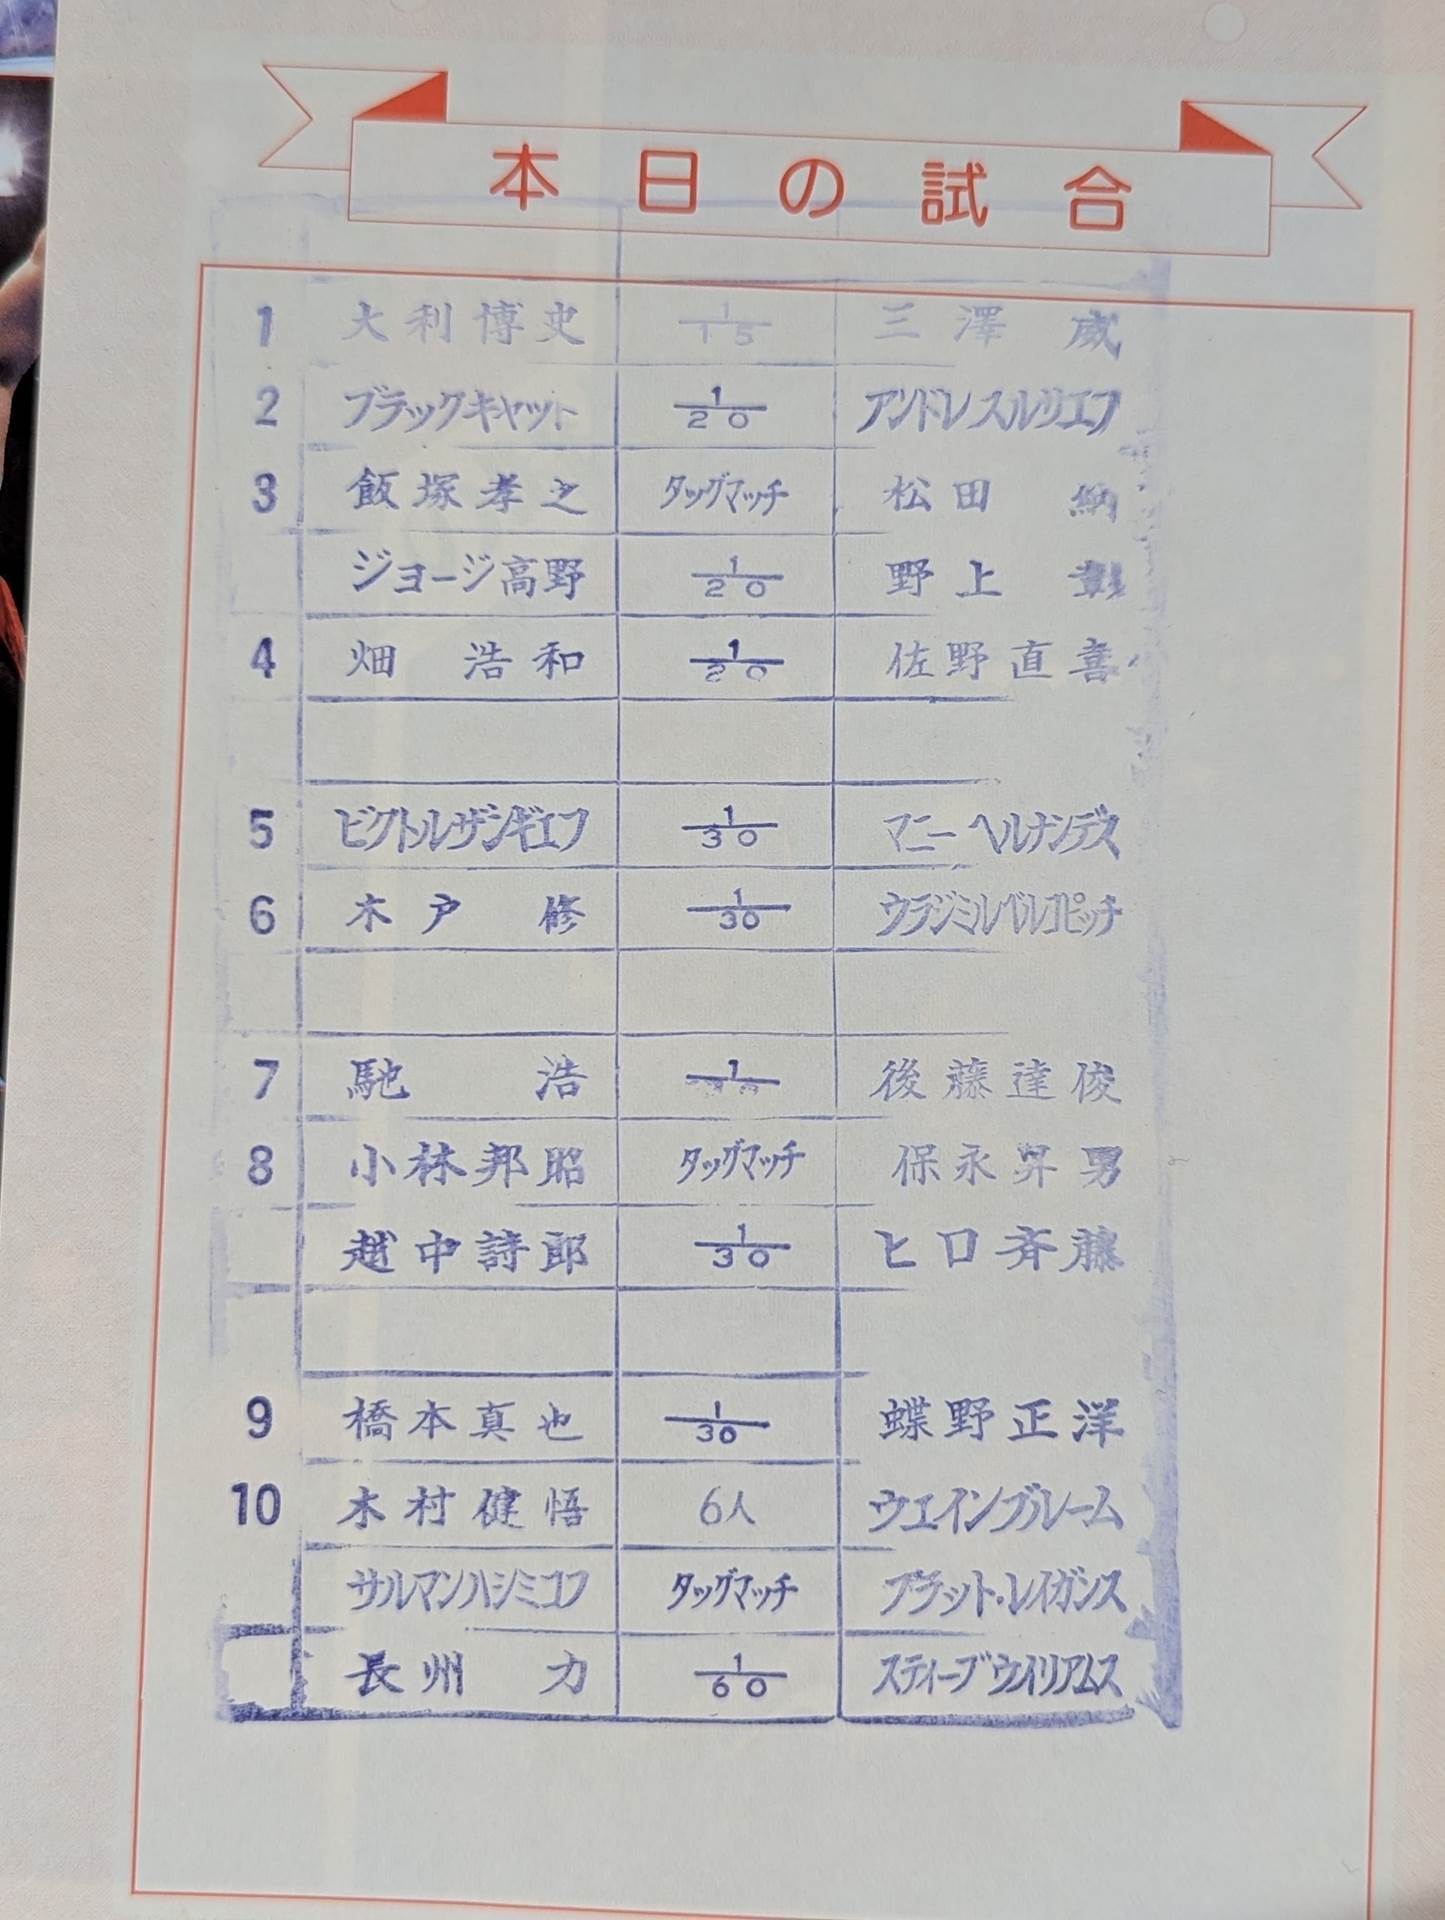 本日の試合
1 大利博史 1/15 三澤威
2 ブラックキャット 1/20 アンドレスルリエフ
3 飯塚孝之 タッグマッチ 松田納
ジョージ高野 1/20 野上彰
4 畑浩和 1/20 佐野直喜
5 ビクトルザンギエフ 1/30 マニーヘルナンデス
6 木戸修 1/30 ウラジミルベルコビッチ
7 馳浩 1/ 後藤達俊
8 小林邦昭 タッグマッチ 保永昇男
越中詩郎 1/30 ヒロ斉藤
9 橋本真也 1/30 蝶野正洋
10 木村健悟 6人 ウエインブルーム
サルマンハシミコフ タッグマッチ ブラット・レイガンス
長州力 1/60 スティーブウイリアムス